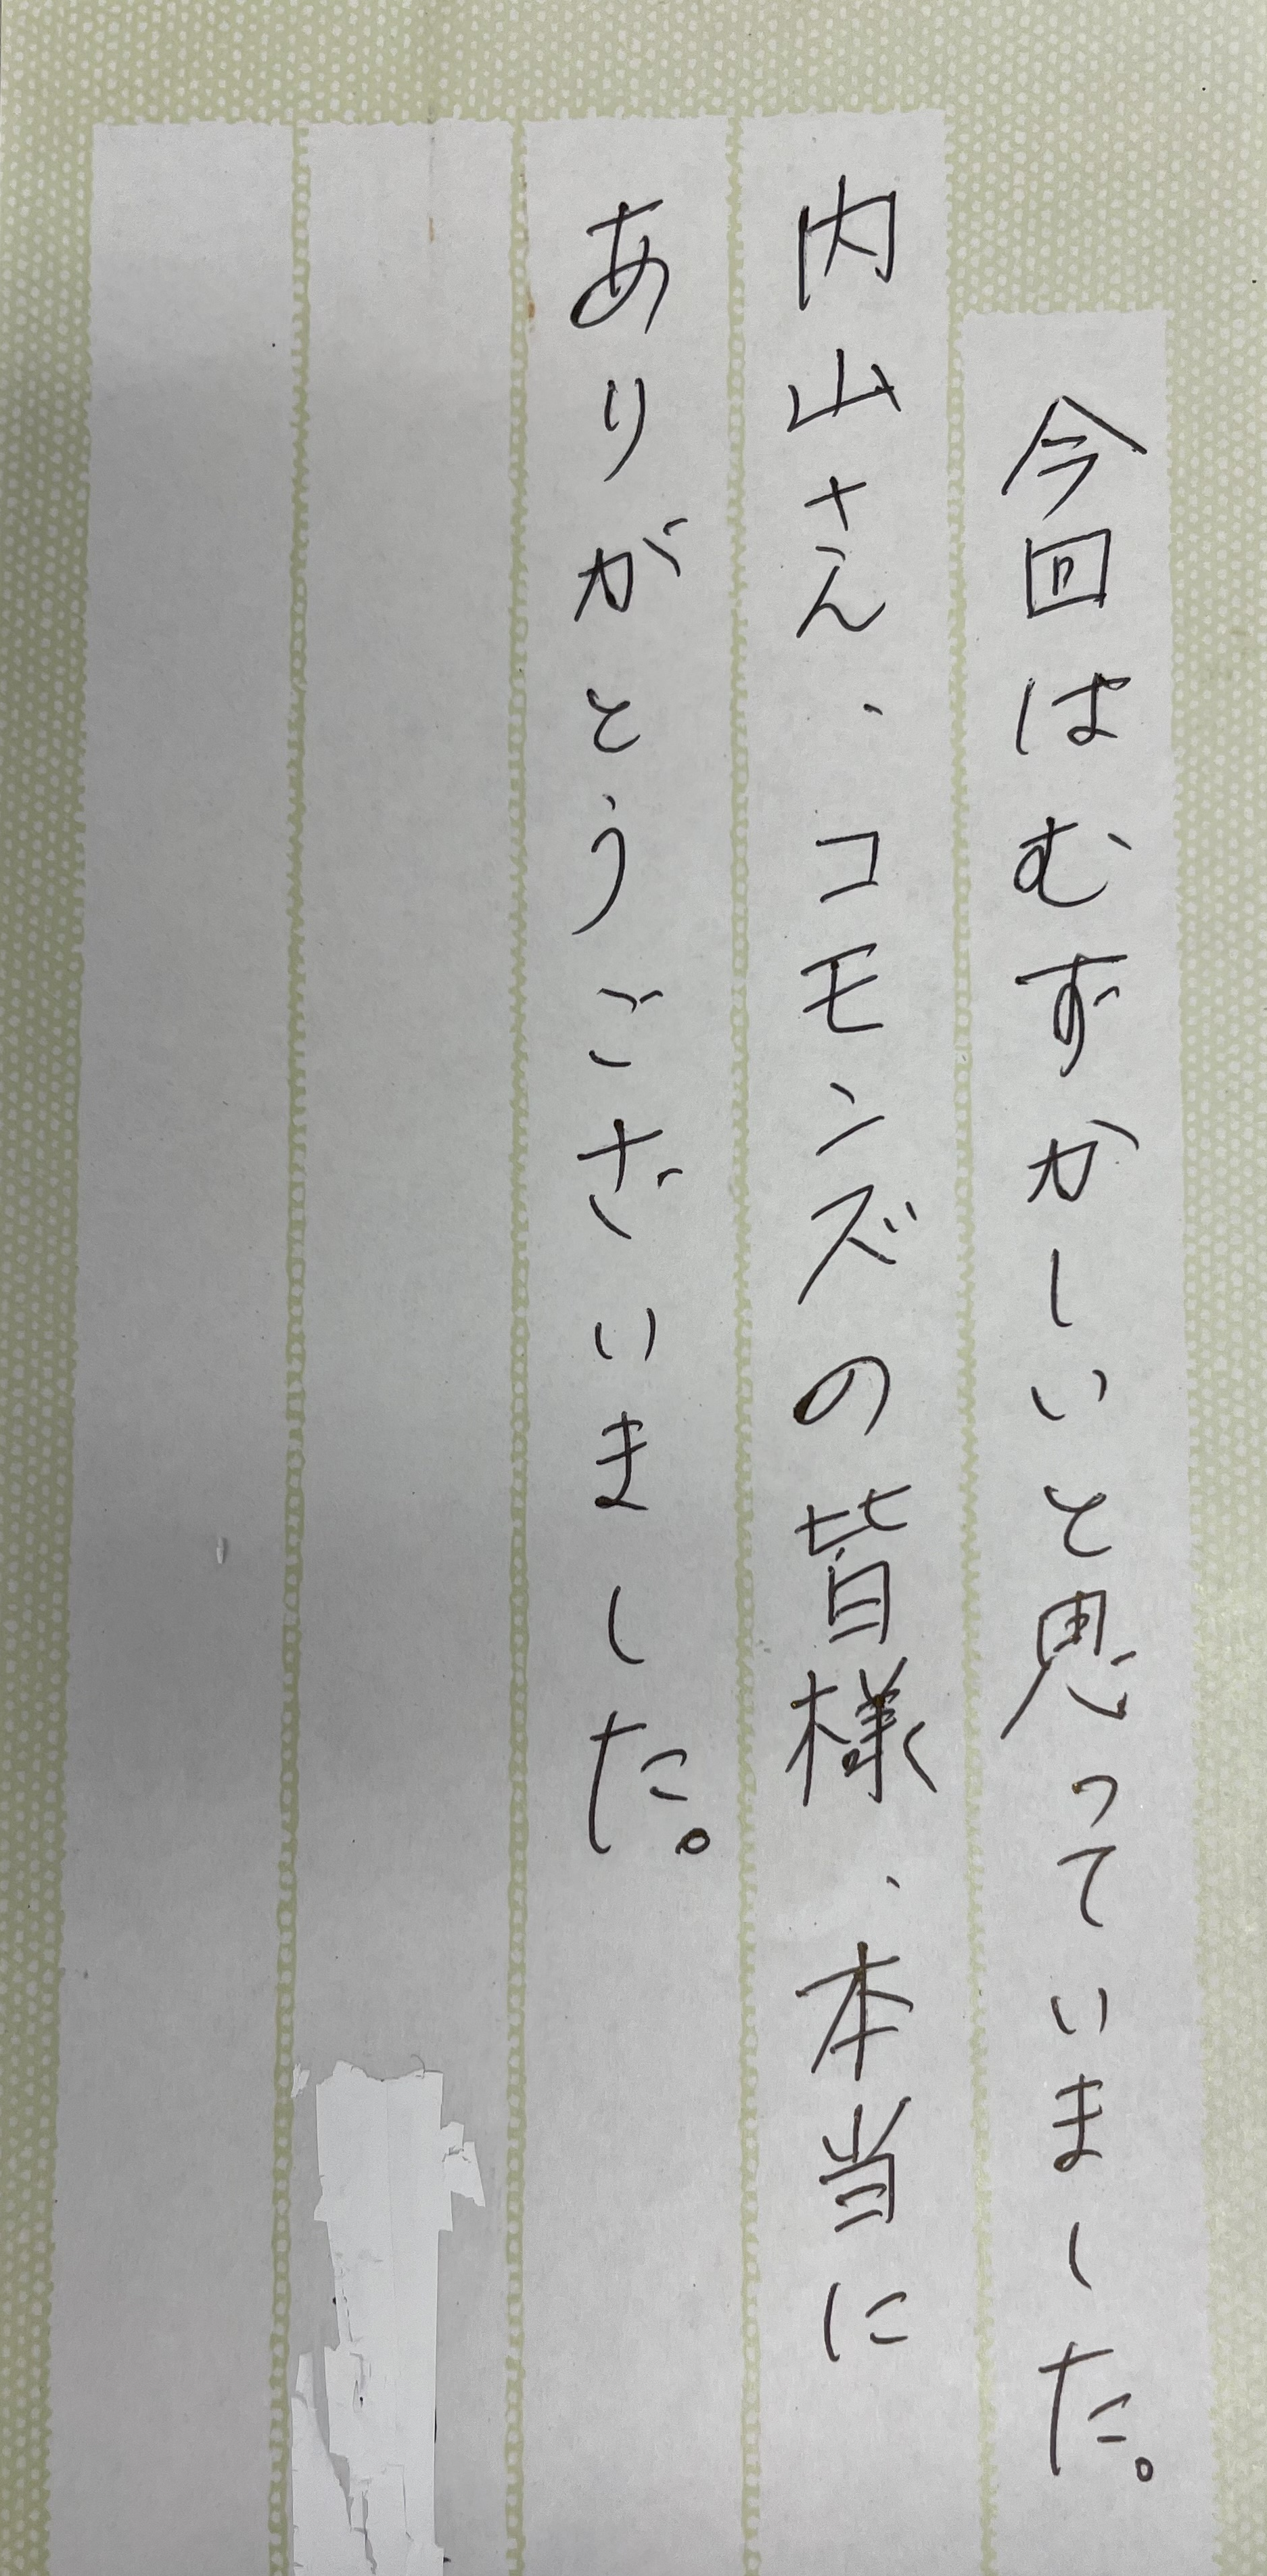 今回はむずかしいと思っていました。
内山さん、コモンズの皆様、本当に
ありがとうございました。